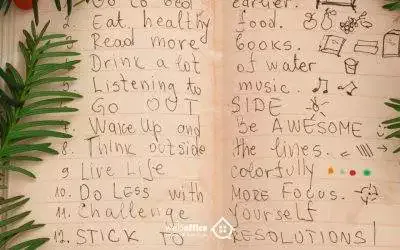 Go to bed earlier.
2. Eat healthy food.
3. Read more books.
Drink a lot of water
5. Listening to music.
GO OUT SIDE
7. Wake Up and Be AWESOME
8. Think outside the lines.
9 Live Life colorfully
10. Do Less with MORE FOCUS.
11. Challenge Yourself
12. STICK TO RESOLUTIONS!
office